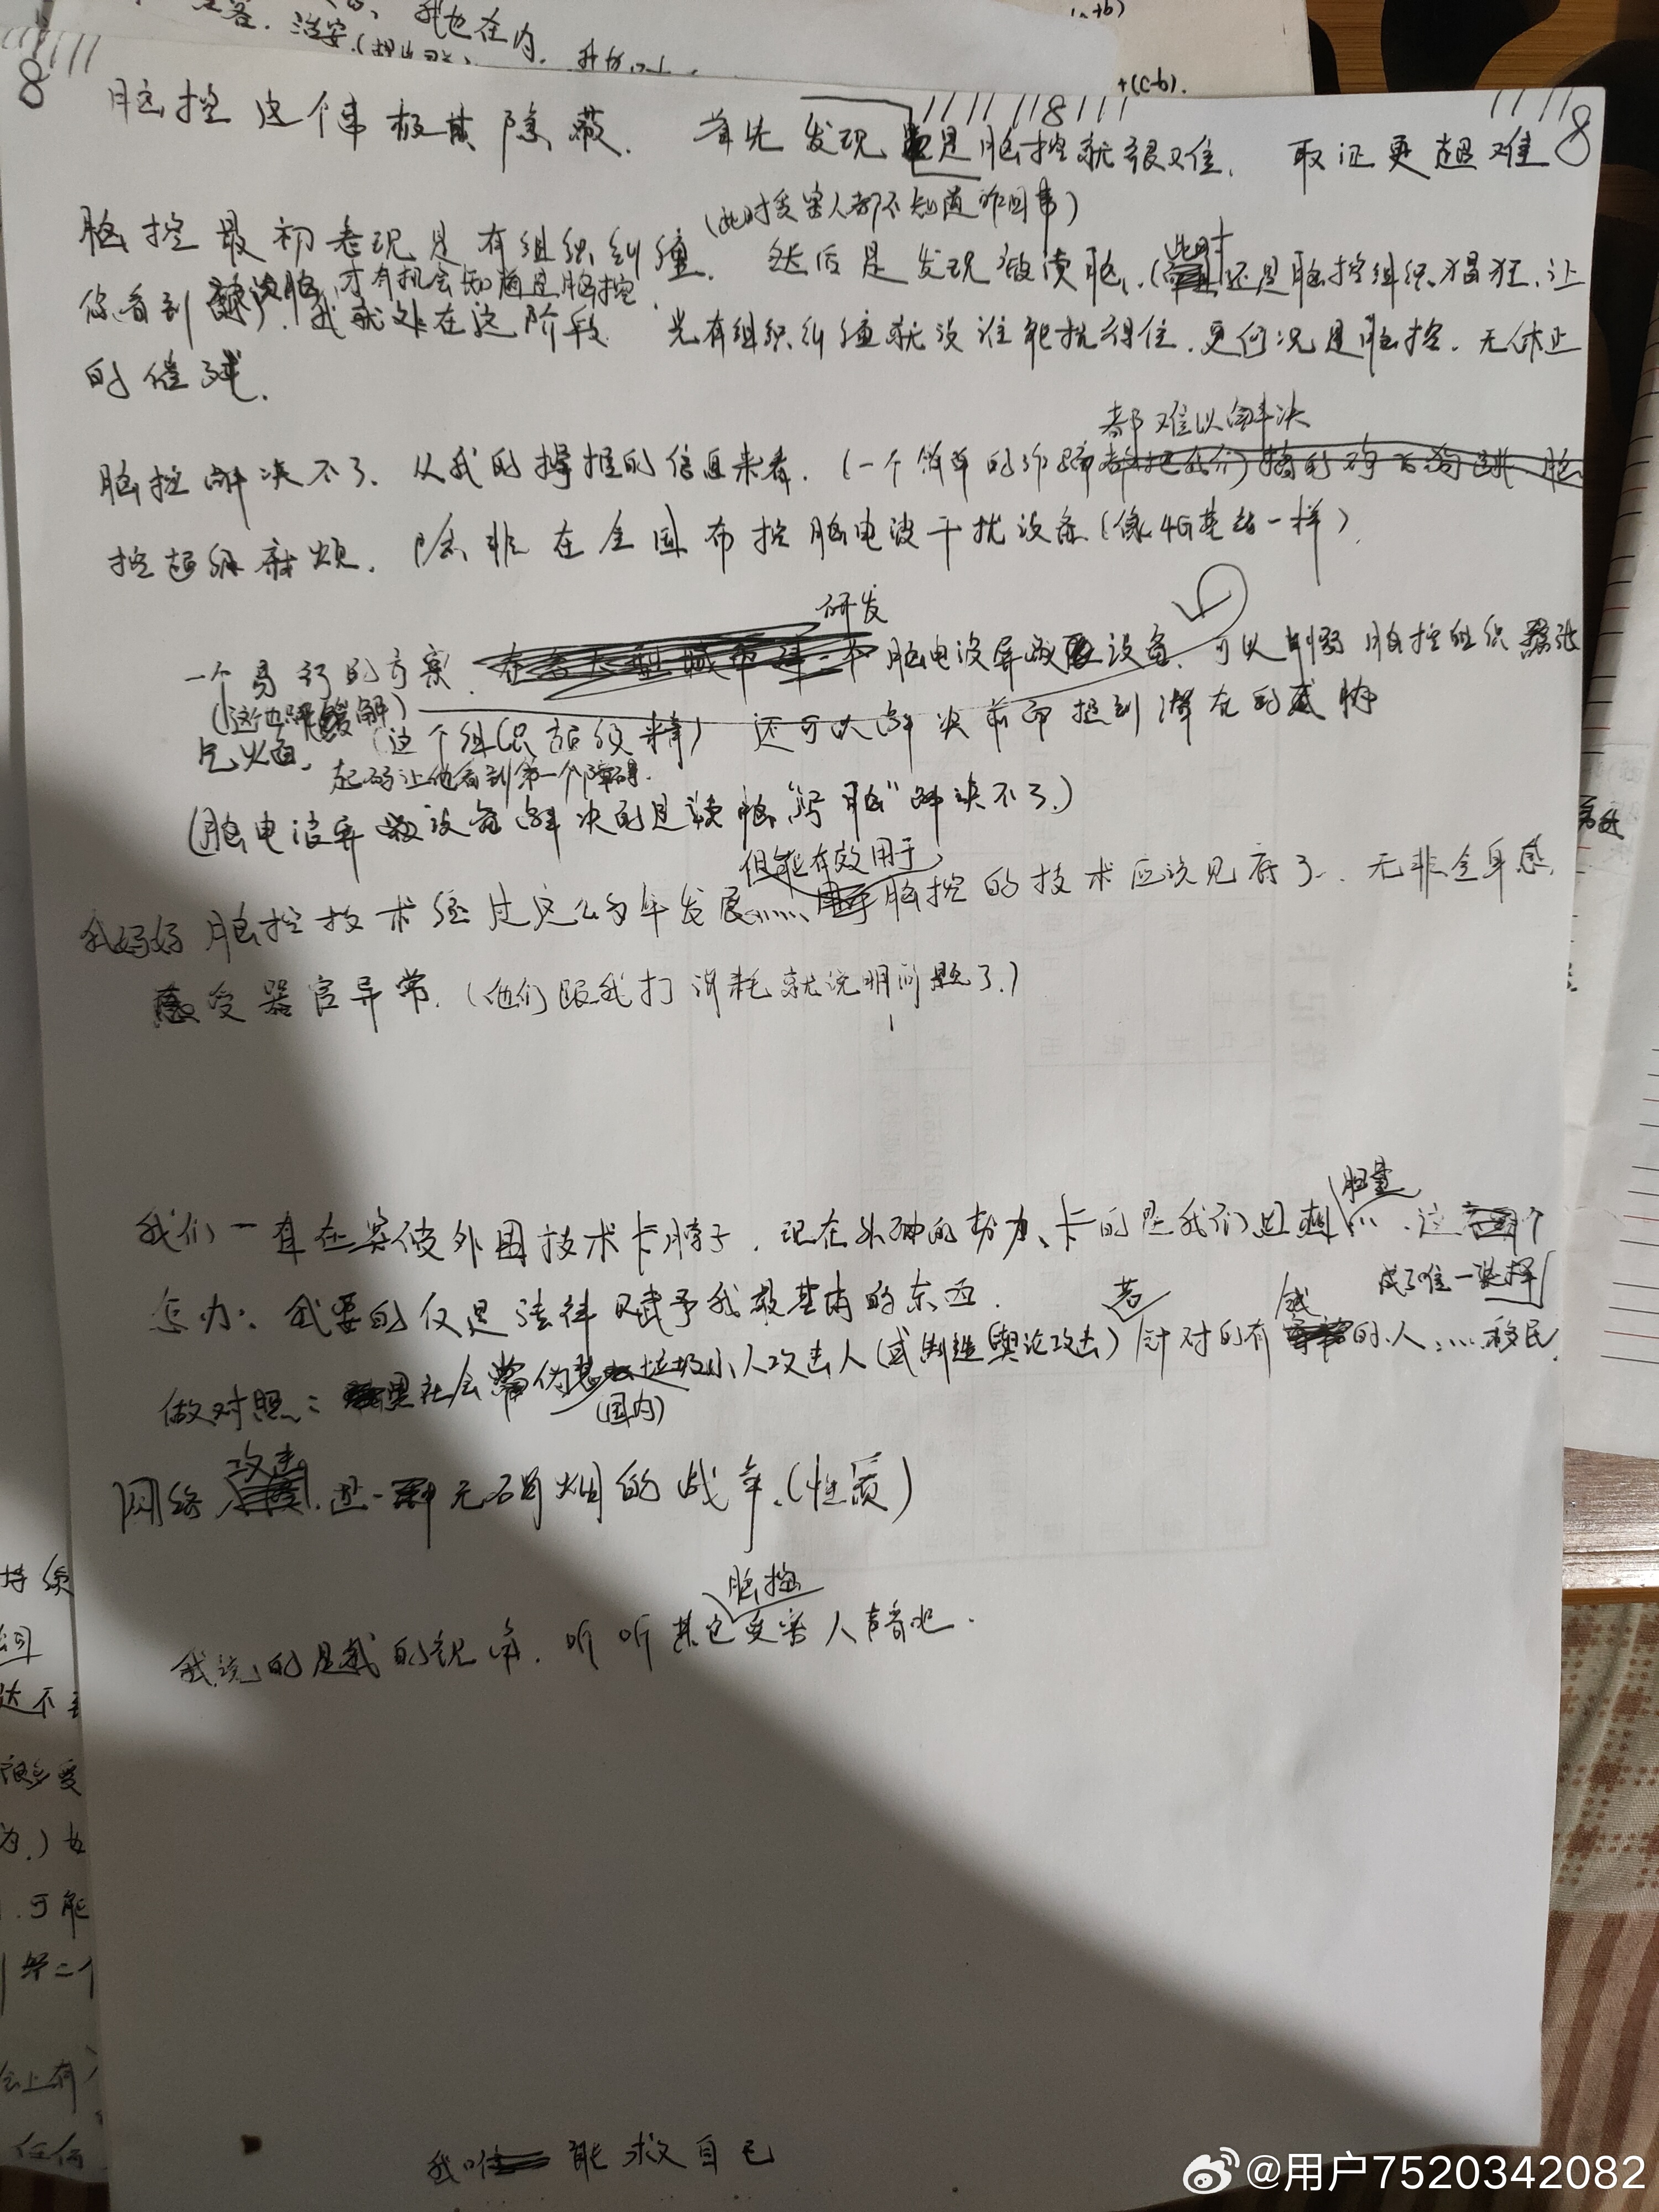 我也在内.
+(c-b).
8
脑控这个事极其隐蔽. 首先发现是脑控就很难. 取证更超难
8
8
(此时受害人都不知道咋回事)
脑控最初表现是有组织纠缠. 然后是发现被读脑. (此时还是脑控组织猖狂.让
才有机会知道是脑控
你看到读脑). 我就处在这阶段. 光有组织纠缠就没谁能抗得住.更何况是脑控.无休止
的摧残.
都难以解决
脑控解决不了.从我的掌握的信息来看.(一个简单的诈骗 脑
控超级麻烦. 除非在全国布控脑电波干扰设备(像4G基站一样).
研发
一个易行的方案. 脑电波屏蔽设备.可以削弱脑控组织嚣张
(这也只是缓解)
气焰. (这个组织超级精) 还可以解决前面提到潜在的威胁
起码让他看到第一个障碍.
(脑电波屏蔽设备解决的是读脑"写脑"解决不了.)
但能有效用于
我妈妈脑控技术经过这么多年发展...... 脑控的技术应该见底了. 无非全身感
受器官异常.(他们跟我打消耗就说明问题了.)
胆量
我们一直在突破外国技术卡脖子.现在外神的势力、卡的是我们 .这个
怎办: 我要的仅是法律赋予我最基本的东西.
若 成了唯一选择
做对照: 黑社会 伪 垃圾小人攻击人(或制造舆论攻击) 针对的有钱的人.... 移民
(国内)
攻击
网络 . 是一种无硝烟的战争.(性质)
脑控
我说的是我的视角. 听听其它受害人声音吧.
我唯能救自己
持续
达不
很多受
为.)
.可能
第二个
会上有
任何
@用户7520342082